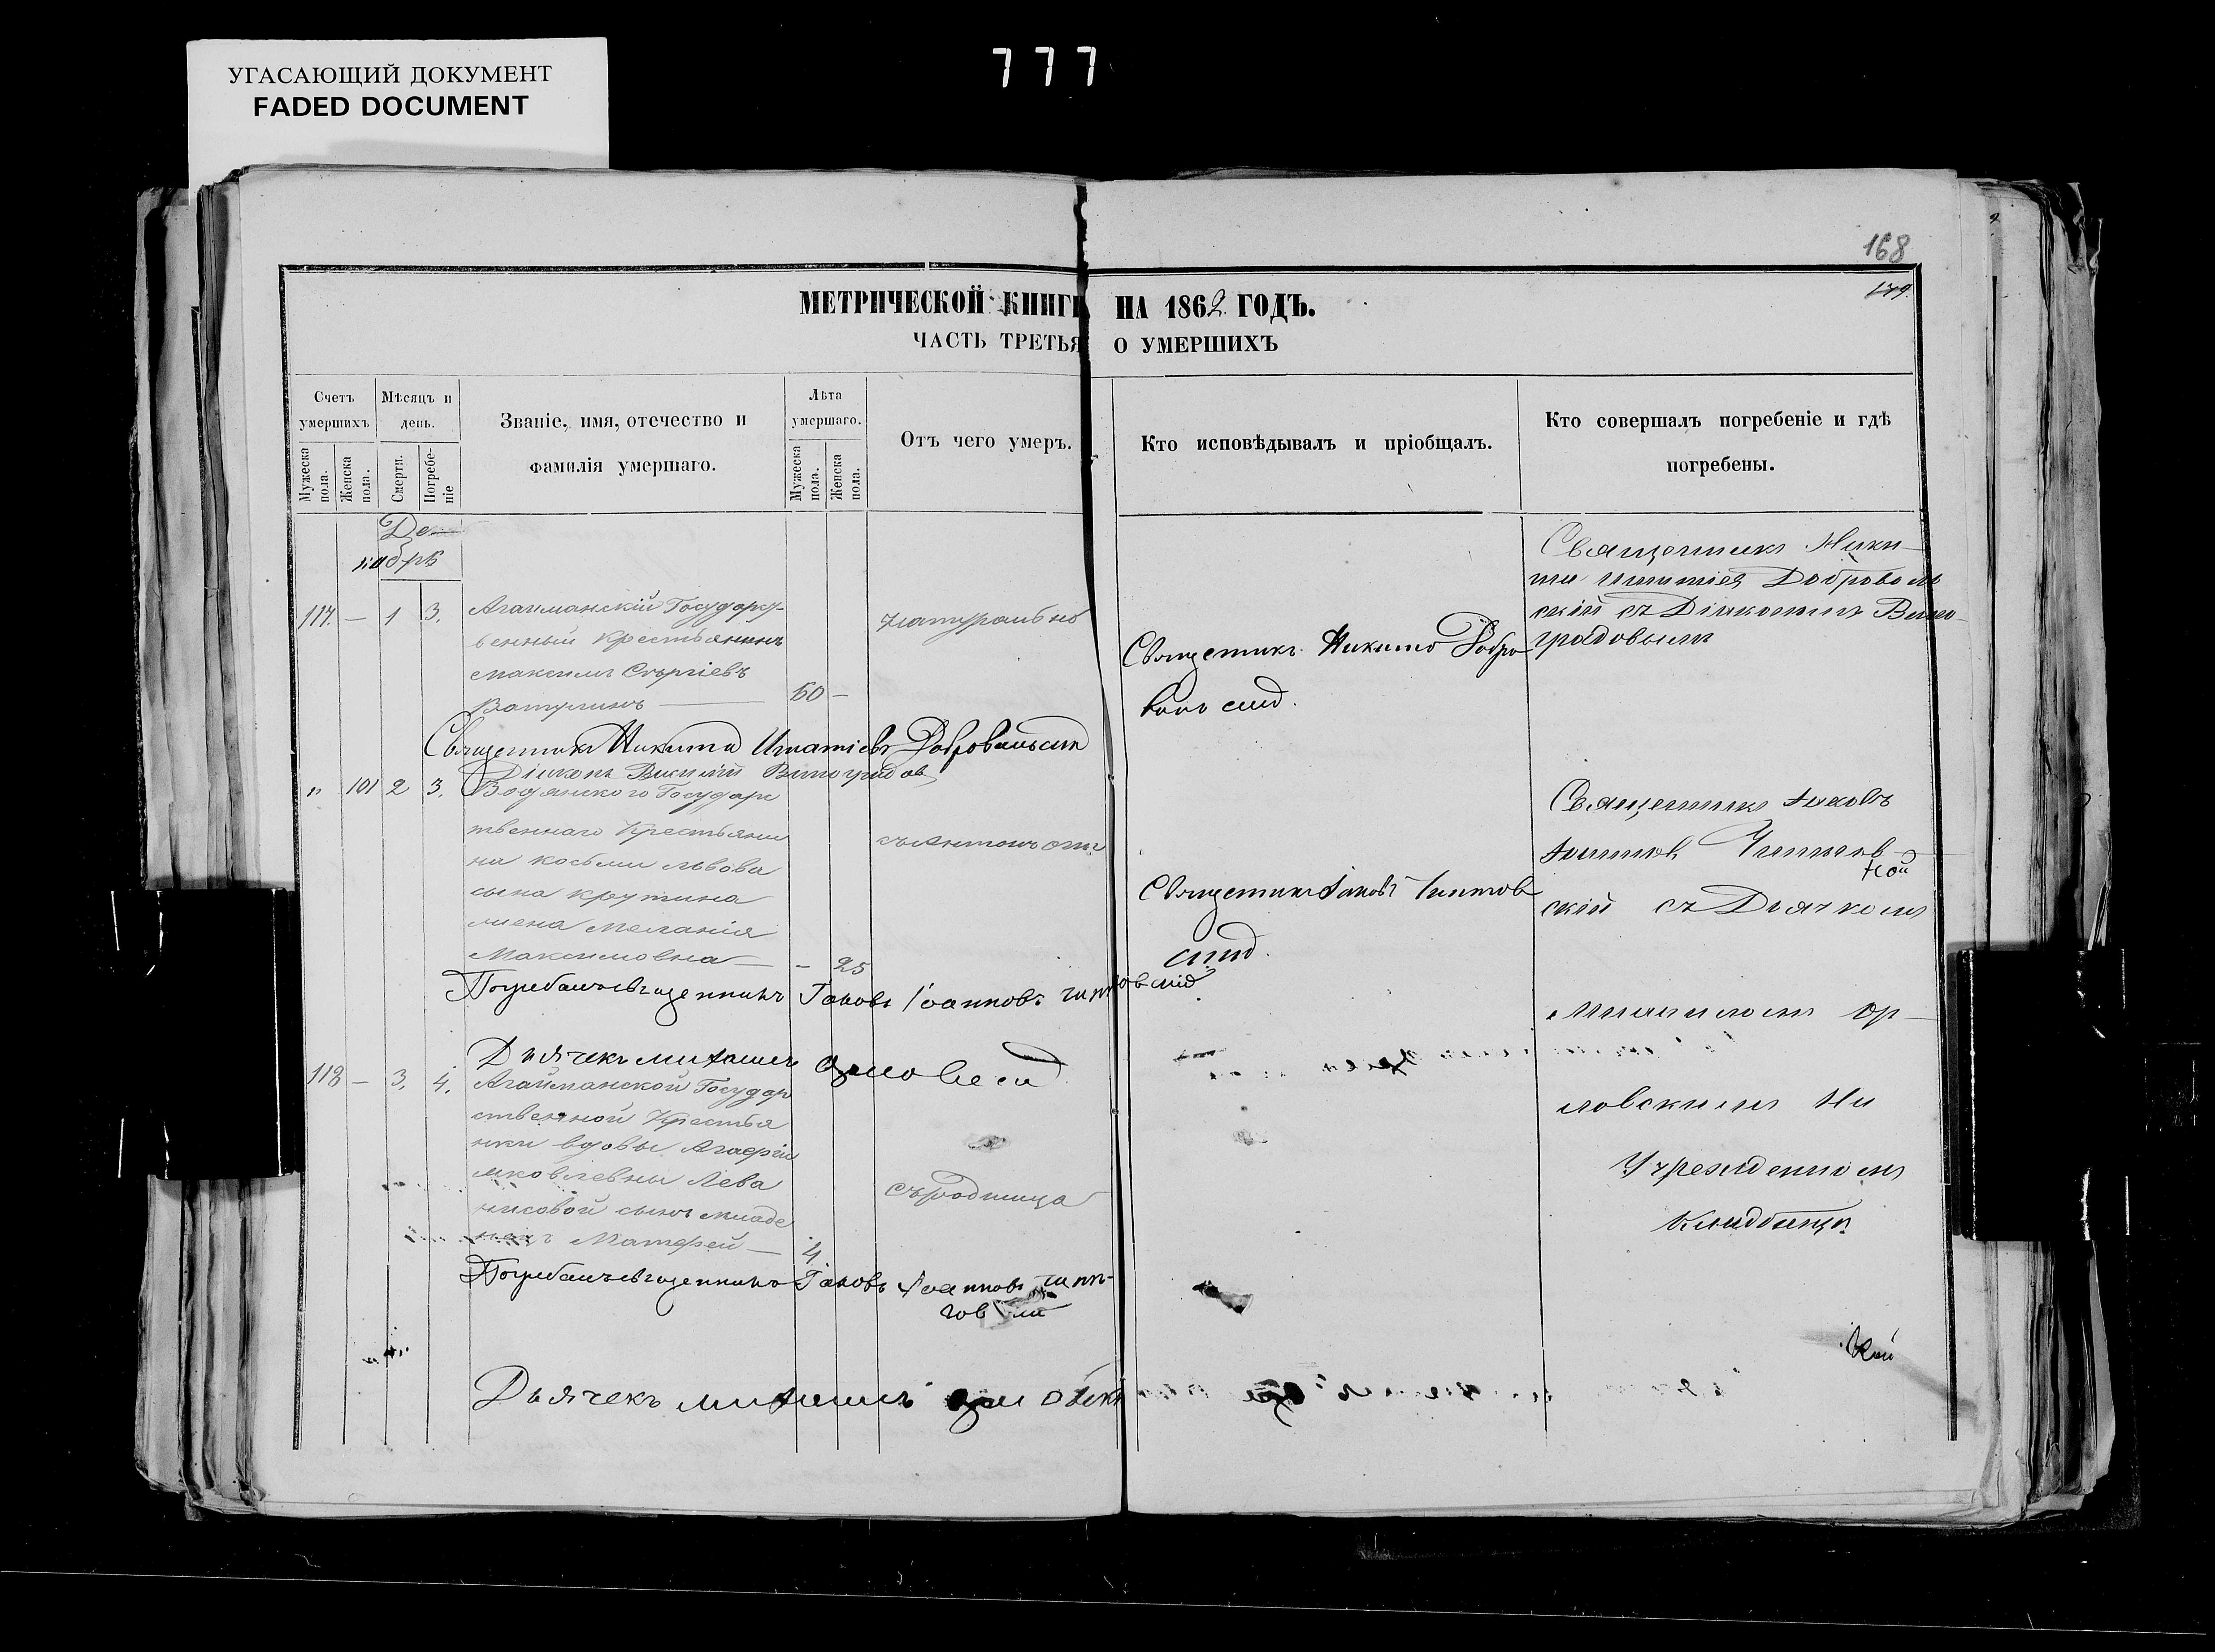 УГАСАЮЩИЙ ДОКУМЕНТ
FADED DOCUMENT
777
168
179.
МЕТРИЧЕСКОЙ КНИГИ НА 1862 ГОДЪ.
ЧАСТЬ ТРЕТЬЯ О УМЕРШИХЪ
Счетъ умершихъ
Мужеска пола.
Женска пола.
Мѣсяцъ и день.
Смерти.
Погребеніе
Званіе, имя, отечество и
фамилія умершаго.
Лѣта умершаго.
Мужеска пола.
Женска пола.
Отъ чего умеръ.
Кто исповѣдывалъ и пріобщалъ.
Кто совершалъ погребеніе и гдѣ
погребены.
Де
кабрѣ
117. — 1 3. Агайманскій Государст
венный Крестьянинъ
Максимъ Сѣргіевъ
Ватулинъ — 60 —
натурально
Священникъ Никита Добро
вольскій.
Священникъ Ники
та Игнатіев Доброволь
скій съ Діакономъ Вино
градовымъ
Священникъ Никита Игнатіевъ Добровольскій
Діаконъ Виноградов
" 101 2 3. Водянского Государс
твеннаго Крестьяни
на Косьми Львова
сына Крутина
жена Меланія
Максимовна — — 25
Священникъ Іаковъ Чинтов
скій.
Священникъ Іаковъ
Іоаннов
скій съ Дьячкомъ
Михаиломъ Ор
ловскимъ На
Учрежденном
Кладбищѣ
Погребалъ священникъ Іаковъ Іоанновъ
Дьячекъ Михаилъ Орловскій
118 — 3. 4. Агайманской Государ
ственной Крестья
нки вдовы Агафіи
Яковлевны Лева
нисовой сынъ младе
нецъ Матфей — 4
съ родимца
Погребалъ священникъ Іаковъ Іоанновъ
Дьячекъ Михаилъ Орловскій